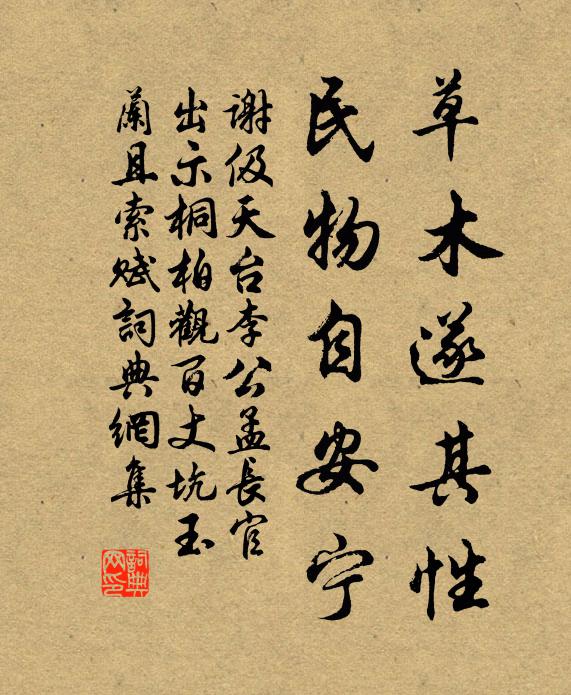 草木遂其性
民物自安宁
谢伋天台李公孟長官
出示桐柏觀百丈坑玉
蘭且索赋詞典網集
詞典网印